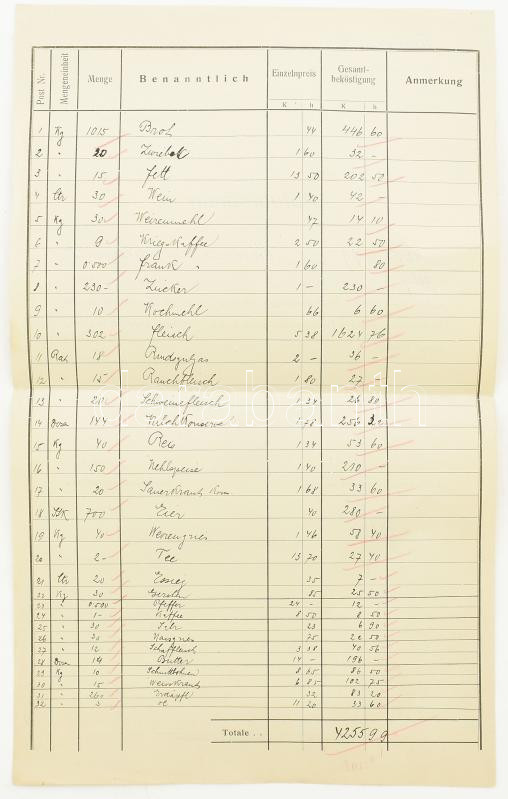 Post Nr. Mengeneinheit Menge Benanntlich Einzelnpreis Gesamtbeköstigung Anmerkung
K h K h
1 Kg 1015 Brot 44 446 60
2 " 20 Zwieback 1 60 32 -
3 " 15 Fett 13 50 202 50
4 Ltr 30 Wein 1 40 42 -
5 Kg 30 Weizenmehl 47 14 10
6 " 9 Krieg-Kaffee 2 50 22 50
7 " 0·500 frank " 1 60 80
8 " 230- Zucker 1 - 230 -
9 " 10 Kochmehl 66 6 60
10 " 302- fleisch 5 38 1624 76
11 Rat. 18 Rindsgulyas 2 - 36 -
12 " 15 Rauchfleisch 1 80 27
13 " 20 Schweinefleisch 1 34 26 80
14 Dose 144 Konserve 1 78 256 32
15 Kg 40 Reis 1 34 53 60
16 " 150 Mehlspeise 1 40 210 -
17 " 20 Sauerkraut Kons. 1 68 33 60
18 Stk 700 Eier 40 280 -
19 Kg 40 Weizengries 1 46 58 40
20 " 2- Tee 13 70 27 40
21 Ltr 20 Essig 35 7 -
22 Kg 30 Gersten 85 25 50
23 " 0·500 Pfeffer 24 - 12 -
24 " 1- Kaffee 8 50 8 50
25 " 30 Salz 23 6 90
26 " 30 Maisgries 75 22 50
27 " 12 Schaffleisch 3 38 40 56
28 Dose 14 Butter 14 - 196 -
29 Kg 10 Schnittbohnen 8 65 86 50
30 " 15 Weisskraut 6 85 102 75
31 " 260 Erdäpfl 32 83 20
32 " 3 öl 11 20 33 60
Totale . . 4255 99
darabanth